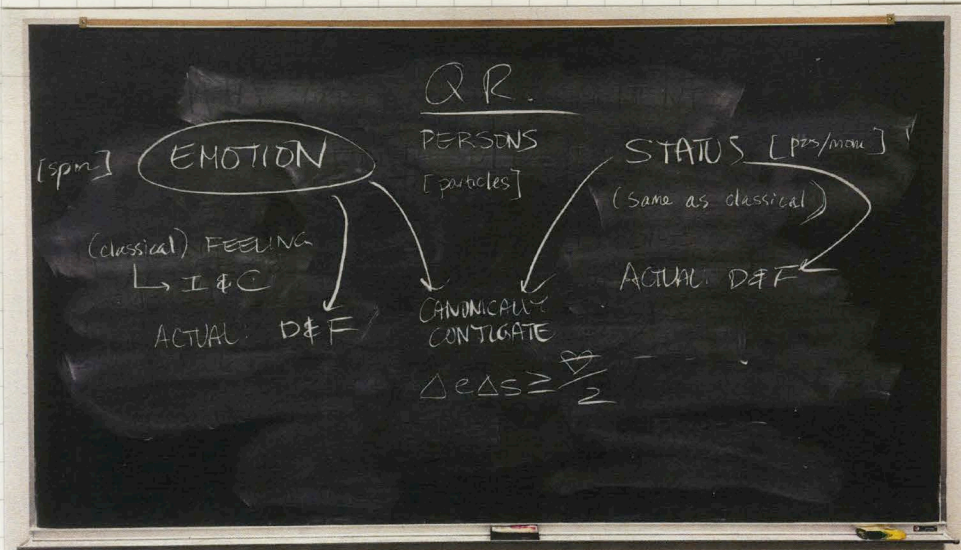 Q R.
PERSONS
[particles]
[spin] EMOTION
(classical) FEELING
↳ I & C
ACTUAL: D & F
STATUS [pos/mom]
(same as classical)
ACTUAL: D & F
CANONICALLY
CONJUGATE
ΔeΔs ≥ ♡/2